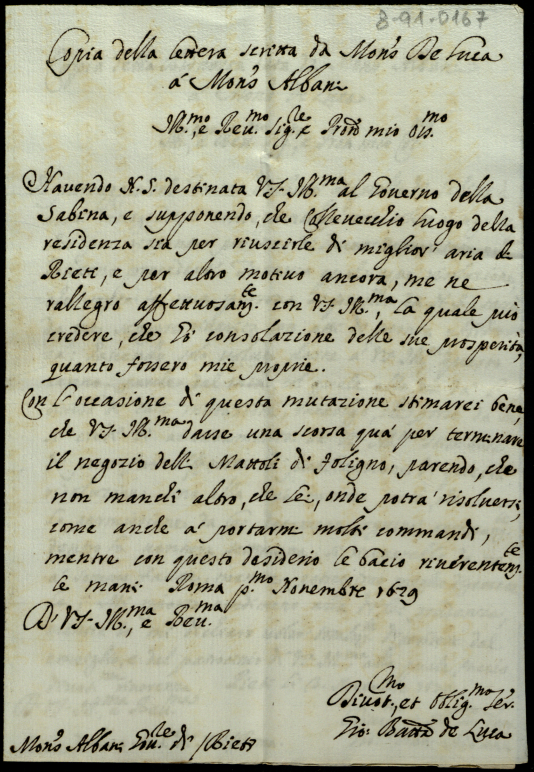 8-91-0167
Copia della lettera scritta da Mons.r De Luca
á Mons.r Albani
Ill.mo, e Reu.mo Sig.re e Pron mio Oss.mo
Hauendo N.S. destinata VS. Ill.ma al Gouerno della
Sabina, e supponendo, che Colleuecchio luogo della
residenza sia per riuscirle di miglior' aria di
Rieti, e per altro motiuo ancora, me ne
rallegro affettuosam.te con VS. Ill.ma, la quale può
credere, che hò consolazione delle sue prosperità,
quanto fossero mie proprie.
Con l'occasione di questa mutazione stimarei bene,
che VS. Ill.ma dasse una scorsa quá per terminare
il negozio delli Mattoli di Foligno, parendo, che
non manchi altro, che lei, onde potrá risoluersi,
come anche á portarmi molti commandi,
mentre con questo desiderio le bacio riuerentem.te
le mani. Roma p.mo Nouembre 1629
D' VS. Ill.ma, e Reu.ma
Diuot.mo, et Oblig.mo Ser.
Gio: Batta de Luca
Mons.r Albani Gou.re di Rieti